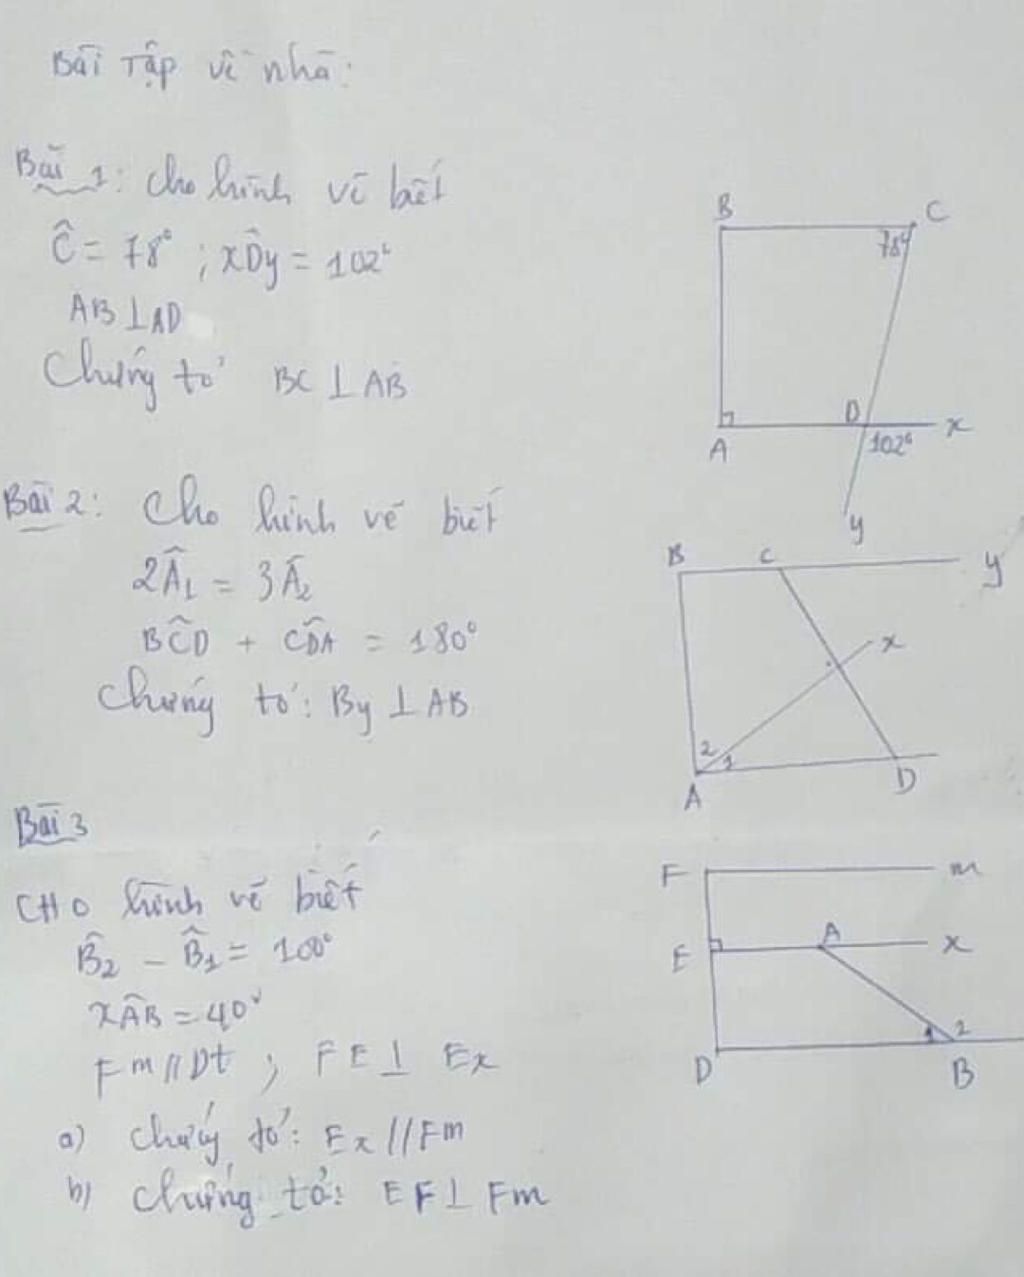 Bài Tập về nhà:
Bài 1: Cho hình vẽ biết
Ĉ = 78°; xD̂y = 102°
AB ⊥ AD
Chứng tỏ BC ⊥ AB
B
C
78°
A
D
x
102°
y
Bài 2: Cho hình vẽ biết
2Â₁ = 3Â₂
BĈD + CD̂A = 180°
Chứng tỏ: By ⊥ AB
B
C
y
x
2
1
A
D
Bài 3
CHO hình vẽ biết
B̂₂ - B̂₁ = 100°
xÂB = 40°
Fm // Dt ; FE ⊥ Ex
a) Chứng tỏ: Ex // Fm
b) Chứng tỏ: EF ⊥ Fm
F
m
E
A
x
1
2
D
B